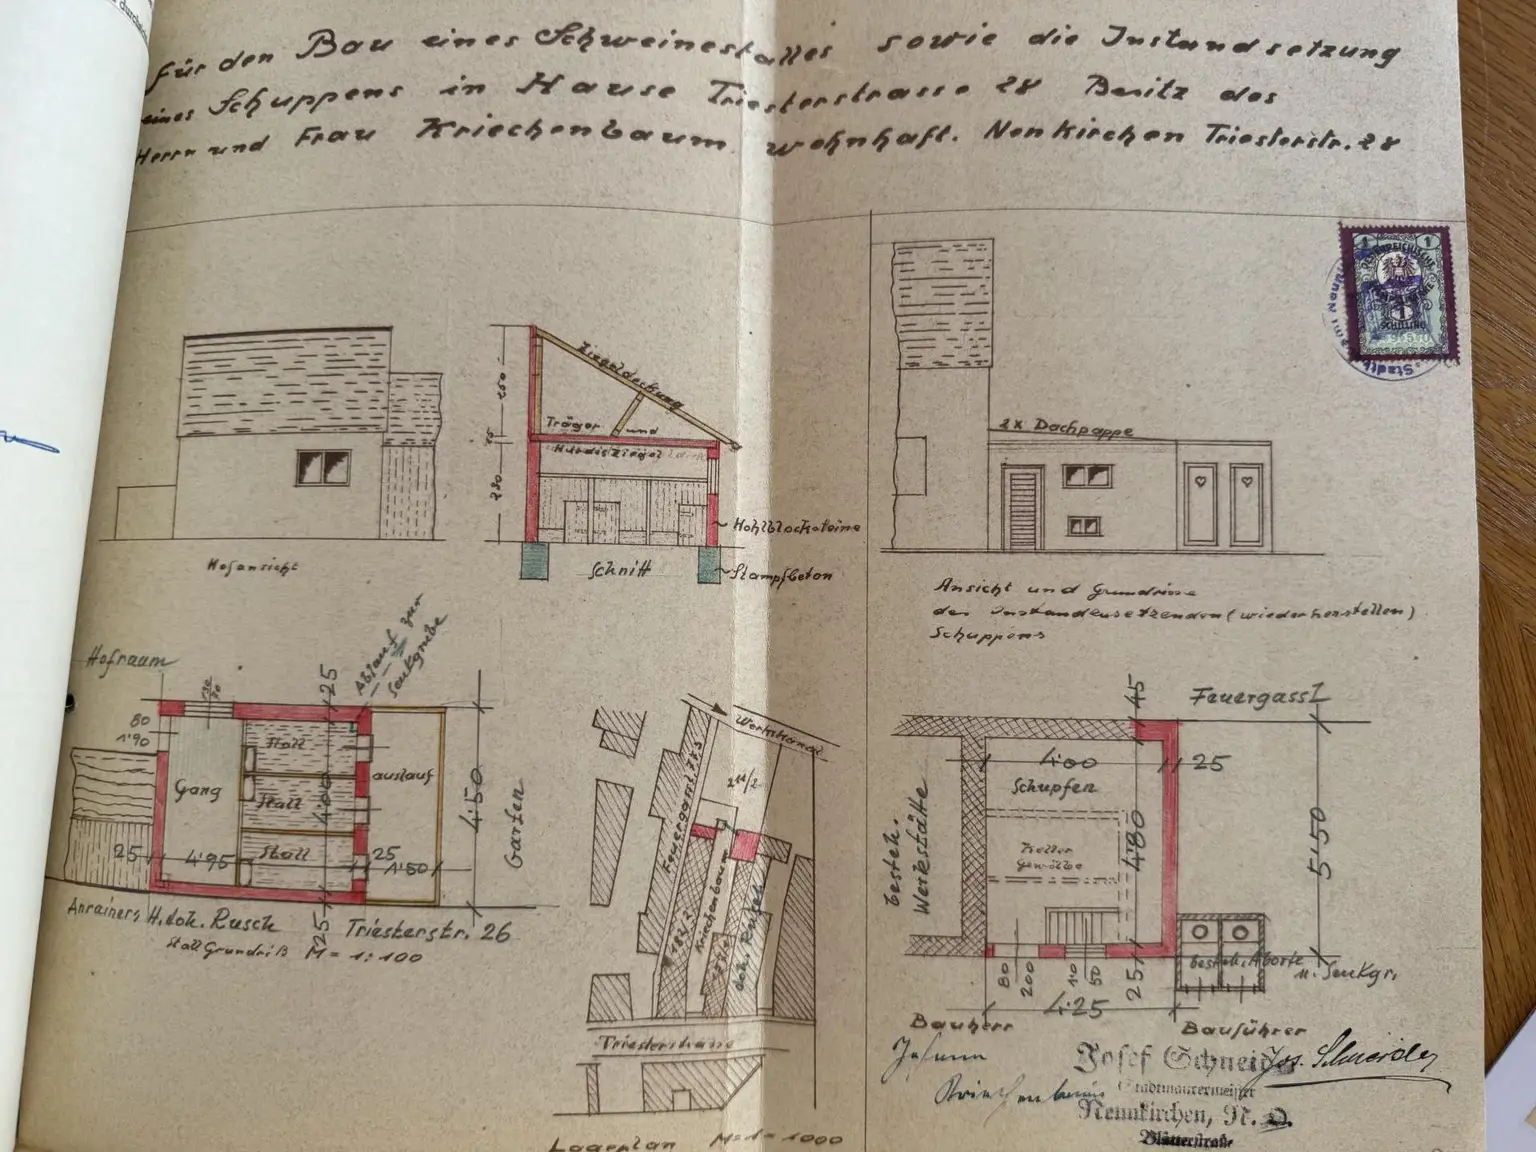 für den Bau eines Schweinestalles sowie die Instandsetzung
eines Schuppens in Hause Triesterstrasse 28 Besitz des
Herrn und Frau Kriechenbaum wohnhaft. Neunkirchen Triesterstr. 28
1 1
ÖSTERREICHISCHE
1
SCHILLING
2x Dachpappe
Ziegeldeckung
Träger und
Hurdisziegel
250
25
230
Hohlblocksteine
Stampfbeton
Hofansicht
Schnitt
Ansicht und Grundrisse
des Instandzusetzenden (wiederherstellen)
Schuppens
Hofraum
Ablauf zur
Senkgrube
25
80
1'90
Stall
Gang
Stall
Stall
4:00
auslauf
4:50
Garten
25
4'95
25
1'50
25
Anrainer, H. dok. Rusch Triesterstr. 26
Stall Grundriß M = 1:100
Werkskanal
Feuergasse 773
211/2
182/2
Kriechenbaum
Triesterstrasse
Lageplan M = 1 = 1000
45
Feuergasse
4:00
25
Schupfen
besteh.
Werkstätte
Keller
Gewölbe
4:80
5:50
80
200
110
50
25
4:25
besteh. Aborte
u. Senkgr.
Bauherr
Bauführer
Johann
Kriechenbaum
Josef Schneider
Jos. Schneider
Stadtmaurermeister
Neunkirchen, N. Ö.
Blätterstraße